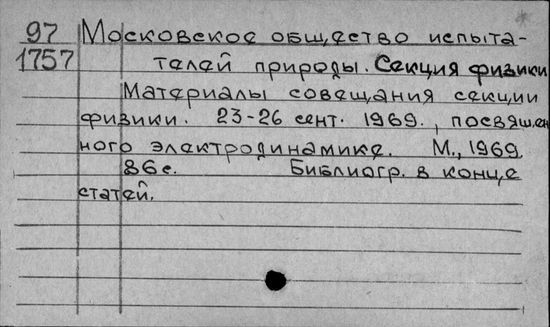 97 Московское общество испыта-
1757 телей природы. Секция физики
Материалы совещания секции
физики. 23-26 сент. 1969., посвящен
ного электродинамике. М., 1969.
86с. Библиогр. в конце
статей.